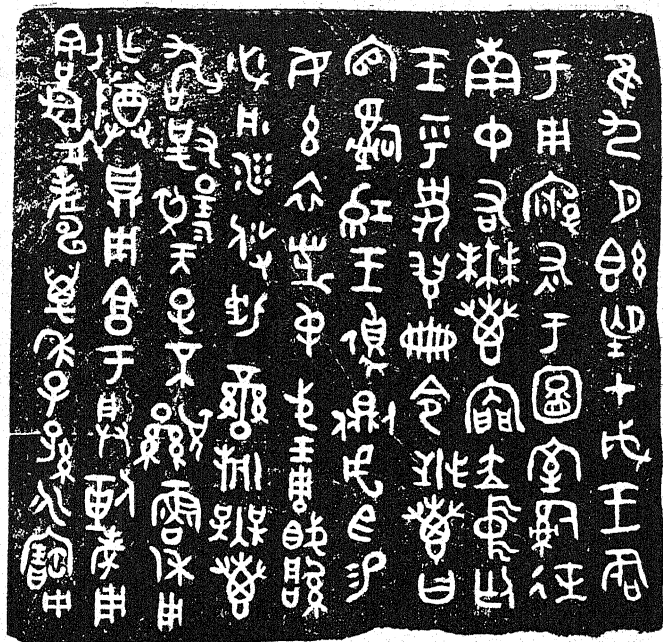 隹九月既望甲戌王各
于周廟述于圖室司徒
南中右無叀內門立中廷
王乎史翏冊令無叀曰
官司紅王側虎臣易
女玄衣黹屯戈琱胾
必彤沙攸勒䜌旂無叀
敢對揚天子不顯魯休用
乍尊鼎用享于朕剌考用
割眉壽萬年子孫永寶用